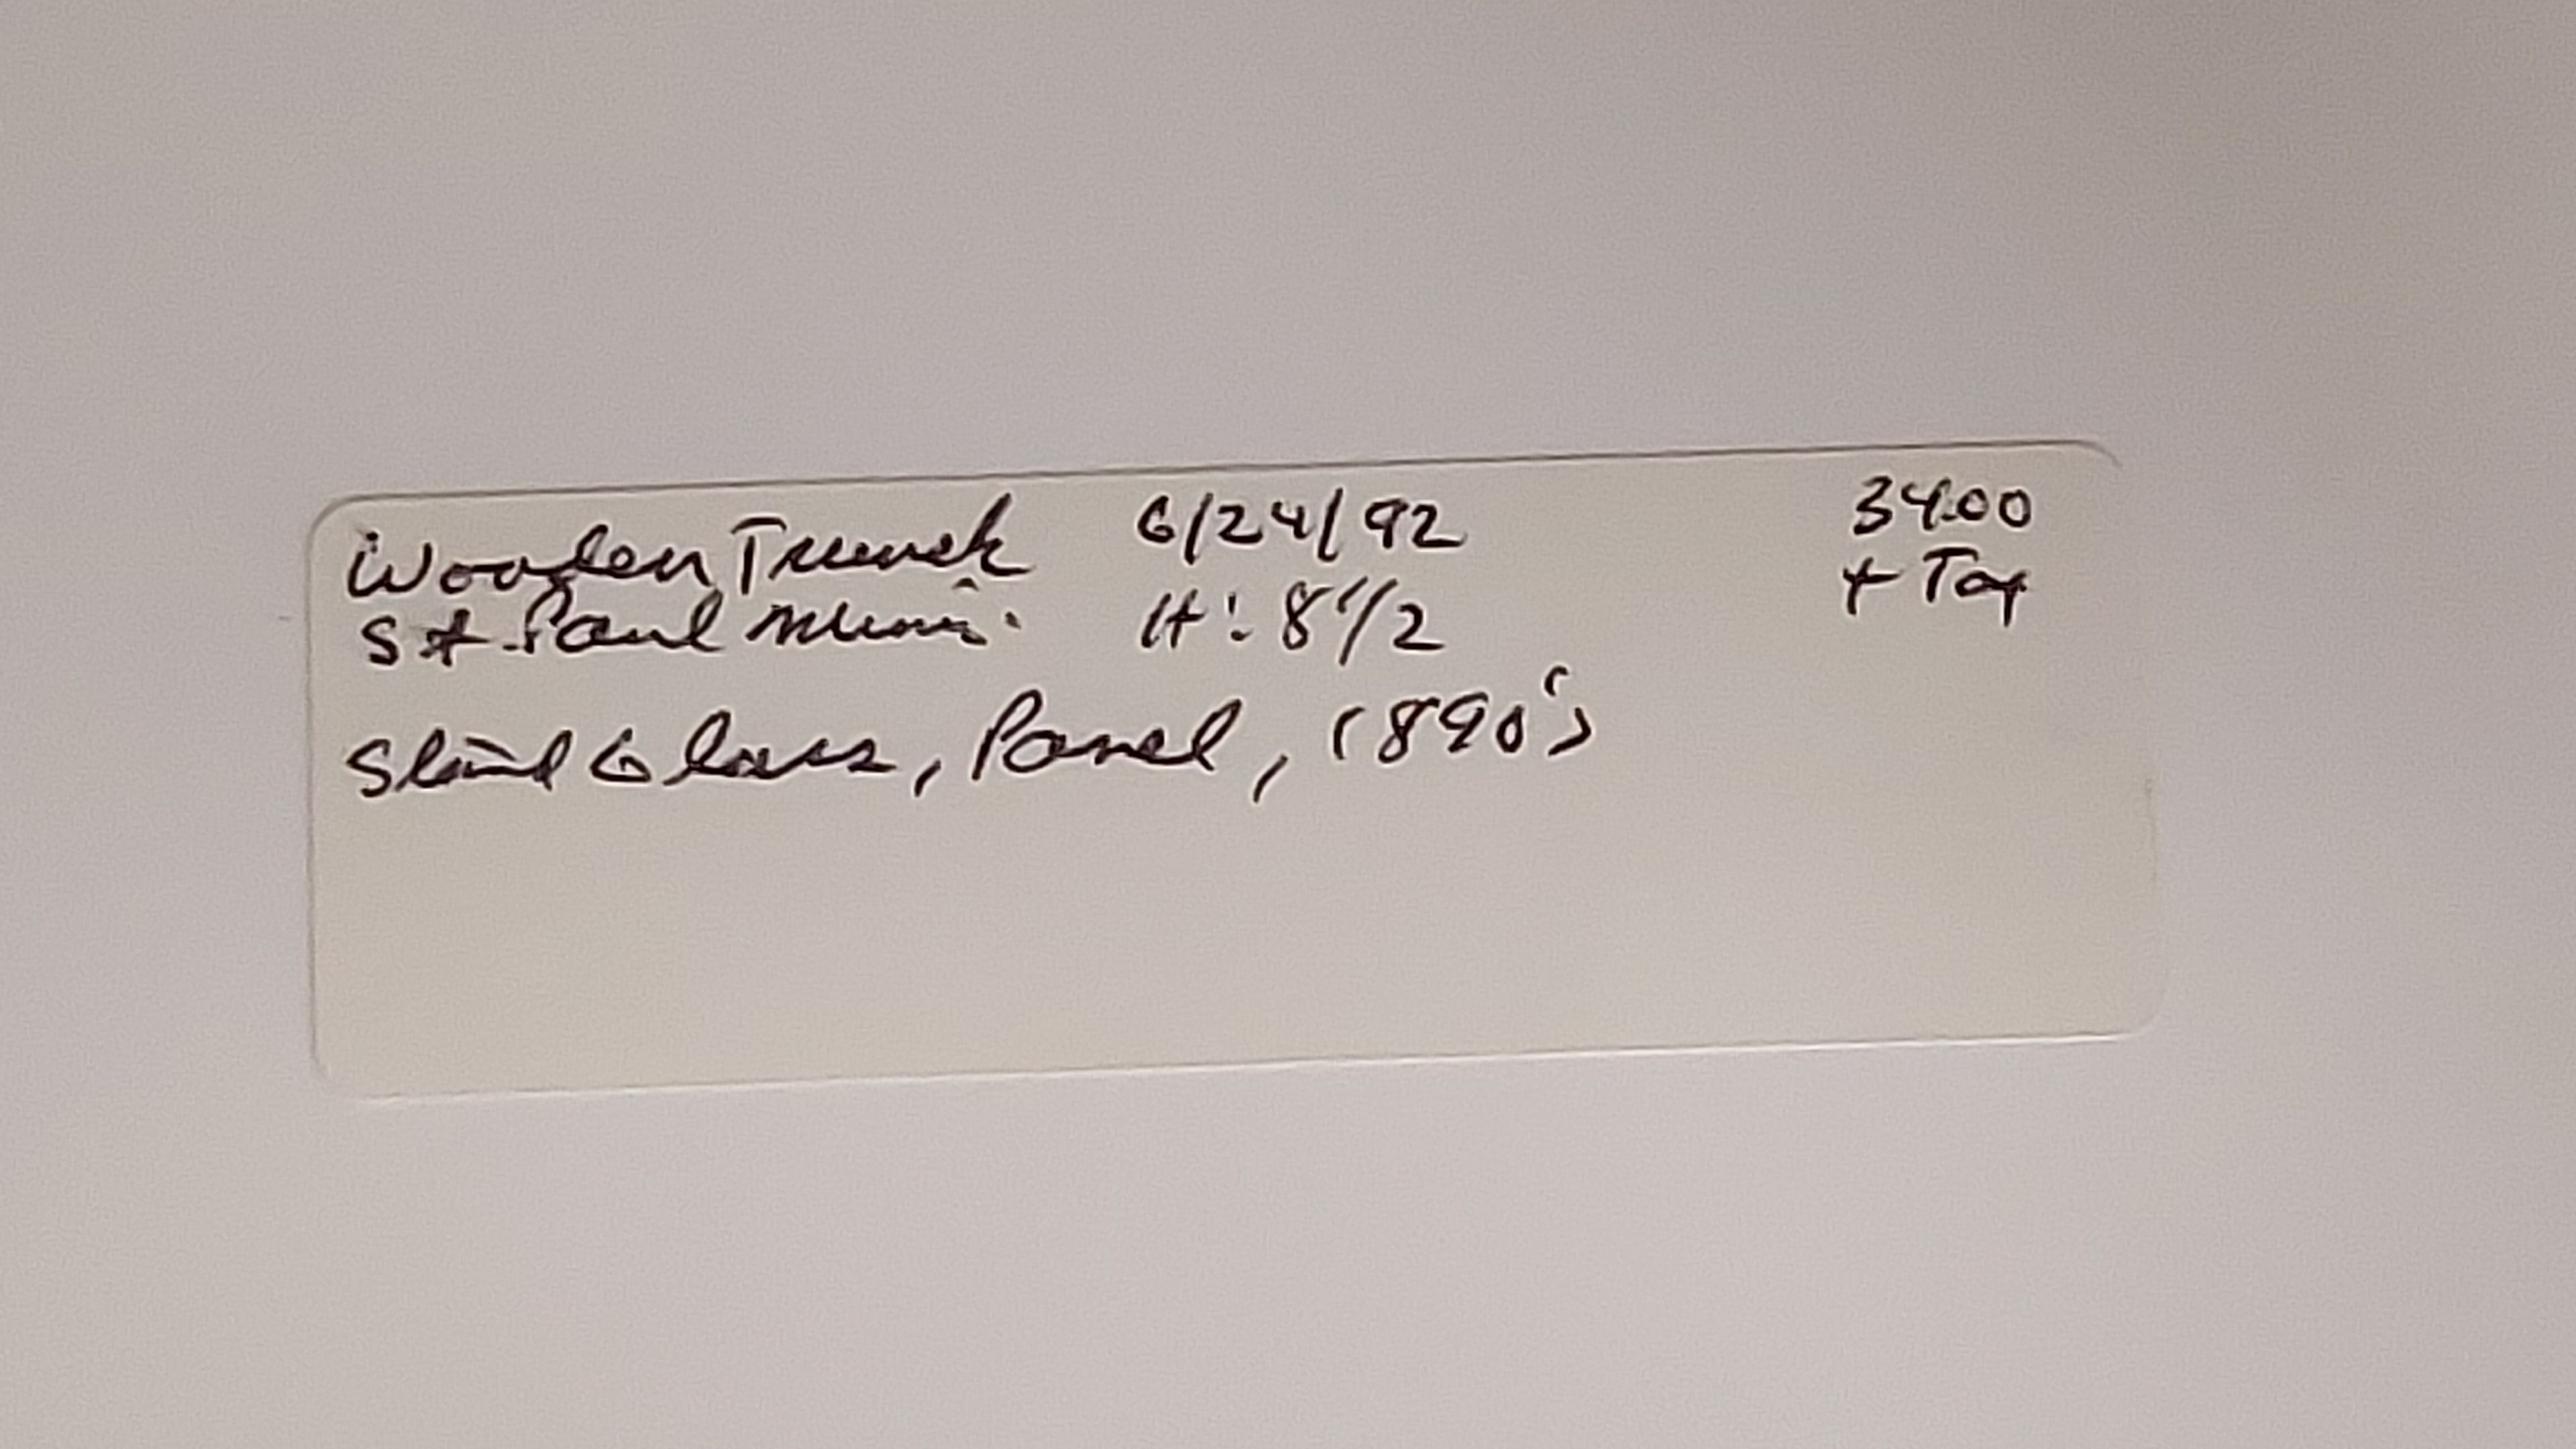 Wooden Trunk 6/24/92 34.00
St. Paul Minn. H: 8 1/2 + Tax
Staind Glass, Panel, 1890's